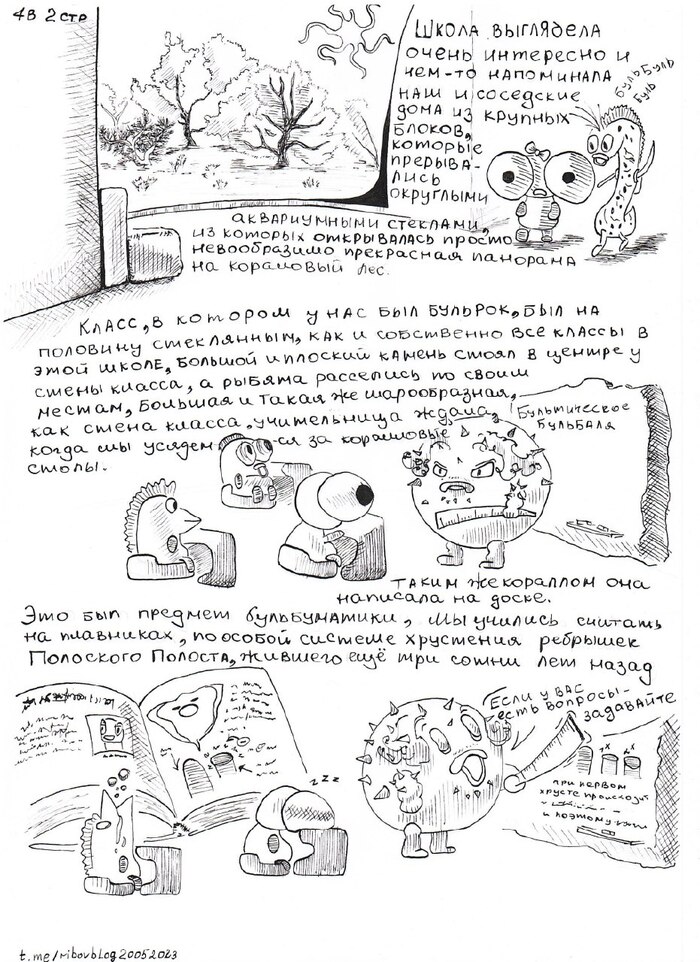 4В 2 стр
Школа выглядела
очень интересно и
чем-то напоминала
наш и соседские
дома из крупных
блоков,
которые
прерыва-
лись
округлыми
бульбуль
буль
аквариумными стеклами,
из которых открывалась просто
невообразимо прекрасная панорама
на коралловый лес.
Класс, в котором у нас был бульрок, был на
половину стеклянным, как и собственно все классы в
этой школе, большой и плоский камень стоял в центре у
стены класса, а рыбята расселись по своим
местам, большая и такая же шарообразная,
как стена класса, учительница ждала,
когда мы усядемся за коралловые
столы.
Бультическое
бульбаля
таким же кораллом она
написала на доске.
Это был предмет бульбуматики, мы учились считать
на плавниках, по особой системе хрустения ребрышек
Полоского Полоста, жившего ещё три сотни лет назад
Если у вас
есть вопросы-
задавайте
zzz
при первом
хрусте происходит
и поэтому
t.me/ribovblog20052023